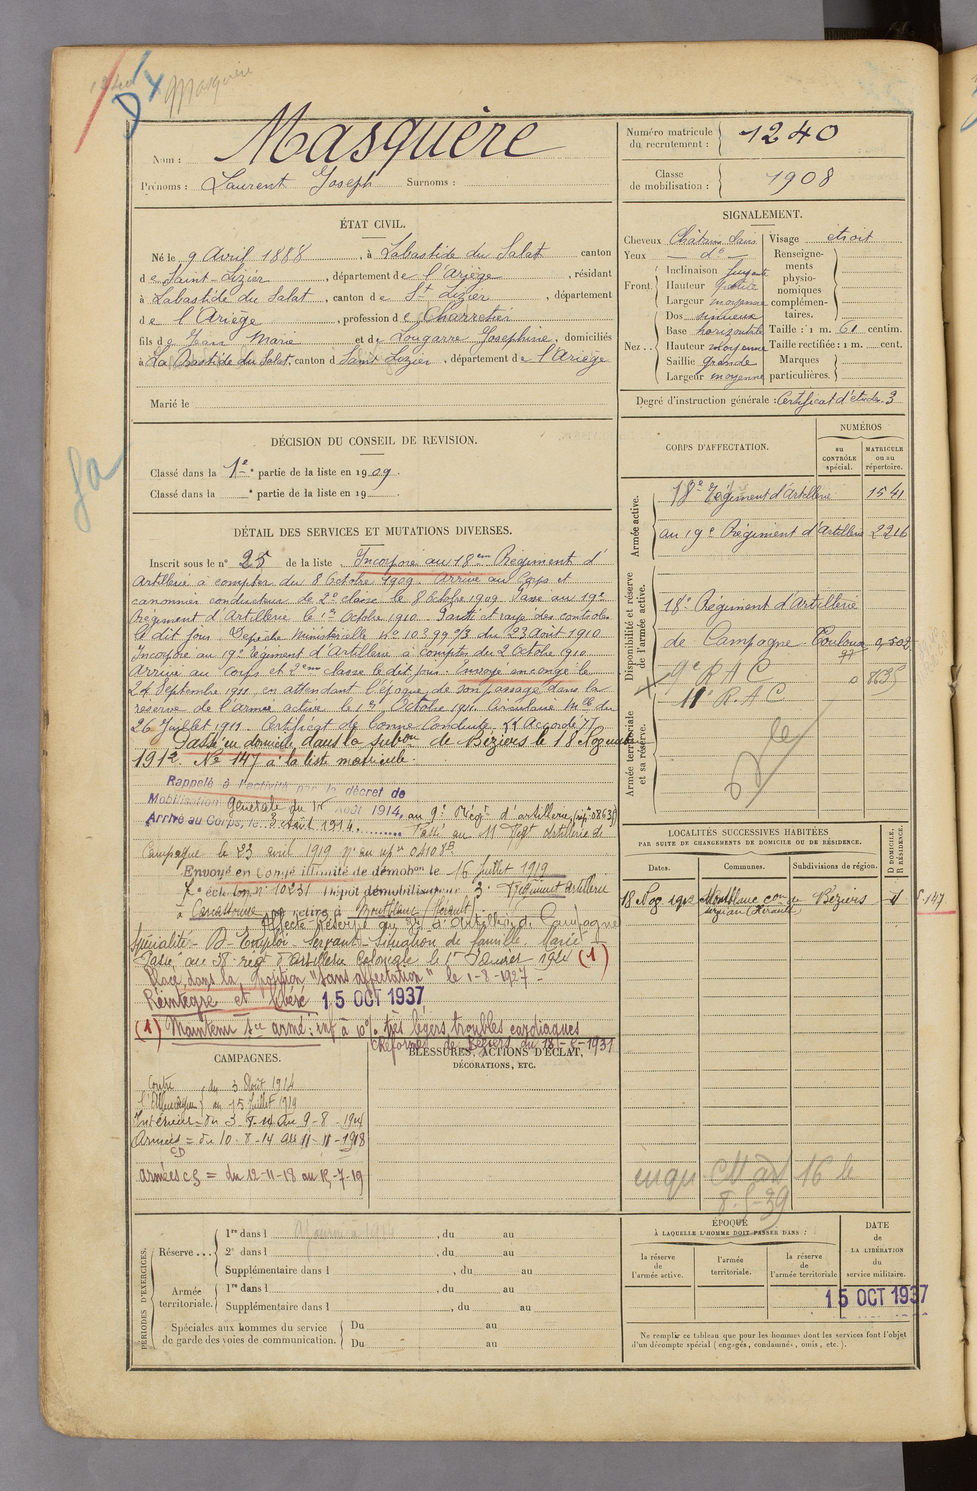 Masquère
Nom : Masquère
Prénoms : Laurent Joseph Surnoms :
Numéro matricule du recrutement : 1240
Classe de mobilisation : 1908
ÉTAT CIVIL.
Né le 9 Avril 1888, à Labastide du Salat canton
de Saint-Lizier, département de l'Ariège, résidant
à Labastide du Salat, canton de St Lizier, département
de l'Ariège, profession de Charretier
fils de Jean Marie et de Lougarre Josephine, domiciliés
à La Bastide du Salat, canton d Saint Lizier, département de l'Ariège
Marié le
SIGNALEMENT.
Cheveux Châtains clairs
Yeux do
Front. Inclinaison fuyante
Hauteur
Largeur moyenne
Nez .. Dos sinueux
Base horizontale
Hauteur moyenne
Saillie grande
Largeur moyenne
Visage étroit
Renseignements physionomiques complémentaires.
Taille : 1 m. 61 centim.
Taille rectifiée : 1 m. cent.
Marques particulières.
Degré d'instruction générale : Certificat d'études 3
DÉCISION DU CONSEIL DE REVISION.
Classé dans la 1e partie de la liste en 1909.
Classé dans la partie de la liste en 19
DÉTAIL DES SERVICES ET MUTATIONS DIVERSES.
Inscrit sous le n° 25 de la liste Incorporé au 18eme Régiment d'
Artillerie à compter du 8 Octobre 1909. Arrivé au Corps et
canonnier conducteur de 2e classe le 8 Octobre 1909. Passé au 19e
Régiment d'Artillerie le 1er Octobre 1910. Passé et rayé des controles
le dit jour. Depêche Ministerielle No 10399 2/3 du 23 Août 1910
Incorporé au 19e Régiment d'Artillerie à compter du 2 Octobre 1910.
Arrivé au corps et 2eme classe le dit jour. Envoyé en congé le
24 Septembre 1911 en attendant l'époque de son passage dans la
reserve de l'armée active le 1er Octobre 1911. Circulaire Mlle du
26 Juillet 1911. Certificat de bonne Conduite "Accordé"
Passé en domicile dans la subon de Béziers le 18 Novembre
1912. No 147 à la liste matricule.
Rappelé à l'activité par le décret de
Mobilisation Générale du 1er Août 1914.
Arrivé au Corps, le 3 Août 1914. au 9e Régt d'artillerie
Passé au 11 Régt Artillerie de
Campagne le 23 avril 1919
Envoyé en Congé illimité de démobon le 16 Juillet 1919
7e échelon no 10231 Dépot démobilisateur 3e Régiment Artillerie
à Carcassonne se retire à Montblanc (Hérault)
Affecté Réserve au d'Artillerie de Campagne
Spécialité - D - Emploi - Servant - Situation de famille. Marié
Passé au 38 régt d'artillerie Coloniale le 1er Janvier 1924 (1)
Placé dans la position "sans affectation" le 1-8-1927 -
Réintégré et libéré 15 OCT 1937
(1) Maintenu sce armé; inf à 10 % très légers troubles cardiaques
Créforme de Béziers du 18-5-1931
CORPS D'AFFECTATION.
NUMÉROS
au CONTRÔLE spécial.
MATRICULE ou au répertoire.
Armée active.
18e Régiment d'Artillerie 1541
au 19e Régiment d'Artillerie 2216
Disponibilité et réserve de l'armée active.
18e Régiment d'Artillerie
de Campagne Toulouse
9e RAC
11e R.A.C
Armée territoriale et sa réserve.
LOCALITÉS SUCCESSIVES HABITÉES
PAR SUITE DE CHANGEMENTS DE DOMICILE OU DE RÉSIDENCE.
Dates. Communes. Subdivisions de région.
D DOMICILE, R RÉSIDENCE.
18 Nov 1912 Montblanc con de Servian (Hérault) Béziers d 147
8-5-39
CAMPAGNES.
Contre l'Allemagne du 3 Août 1914
au 15 Juillet 1919
Intérieur = du 3-8-14 au 9-8-1914
Armées = du 10-8-14 au 11-11-1918
CD
armées CS = du 12-11-18 au 15-7-19
BLESSURES, ACTIONS D'ÉCLAT,
DÉCORATIONS, ETC.
PÉRIODES D'EXERCICES.
Réserve ... 1re dans l Ajourné à 1914, du au
2e dans l , du au
Supplémentaire dans l , du au
Armée territoriale. 1re dans l , du au
Supplémentaire dans l , du au
Spéciales aux hommes du service de garde des voies de communication. Du au
Du au
ÉPOQUE
À LAQUELLE L'HOMME DOIT PASSER DANS :
la réserve de l'armée active.
l'armée territoriale.
la réserve de l'armée territoriale
DATE de LA LIBÉRATION du service militaire.
15 OCT 1937
Ne remplir ce tableau que pour les hommes dont les services font l'objet
d'un décompte spécial (engagés, condamnés, omis, etc.).